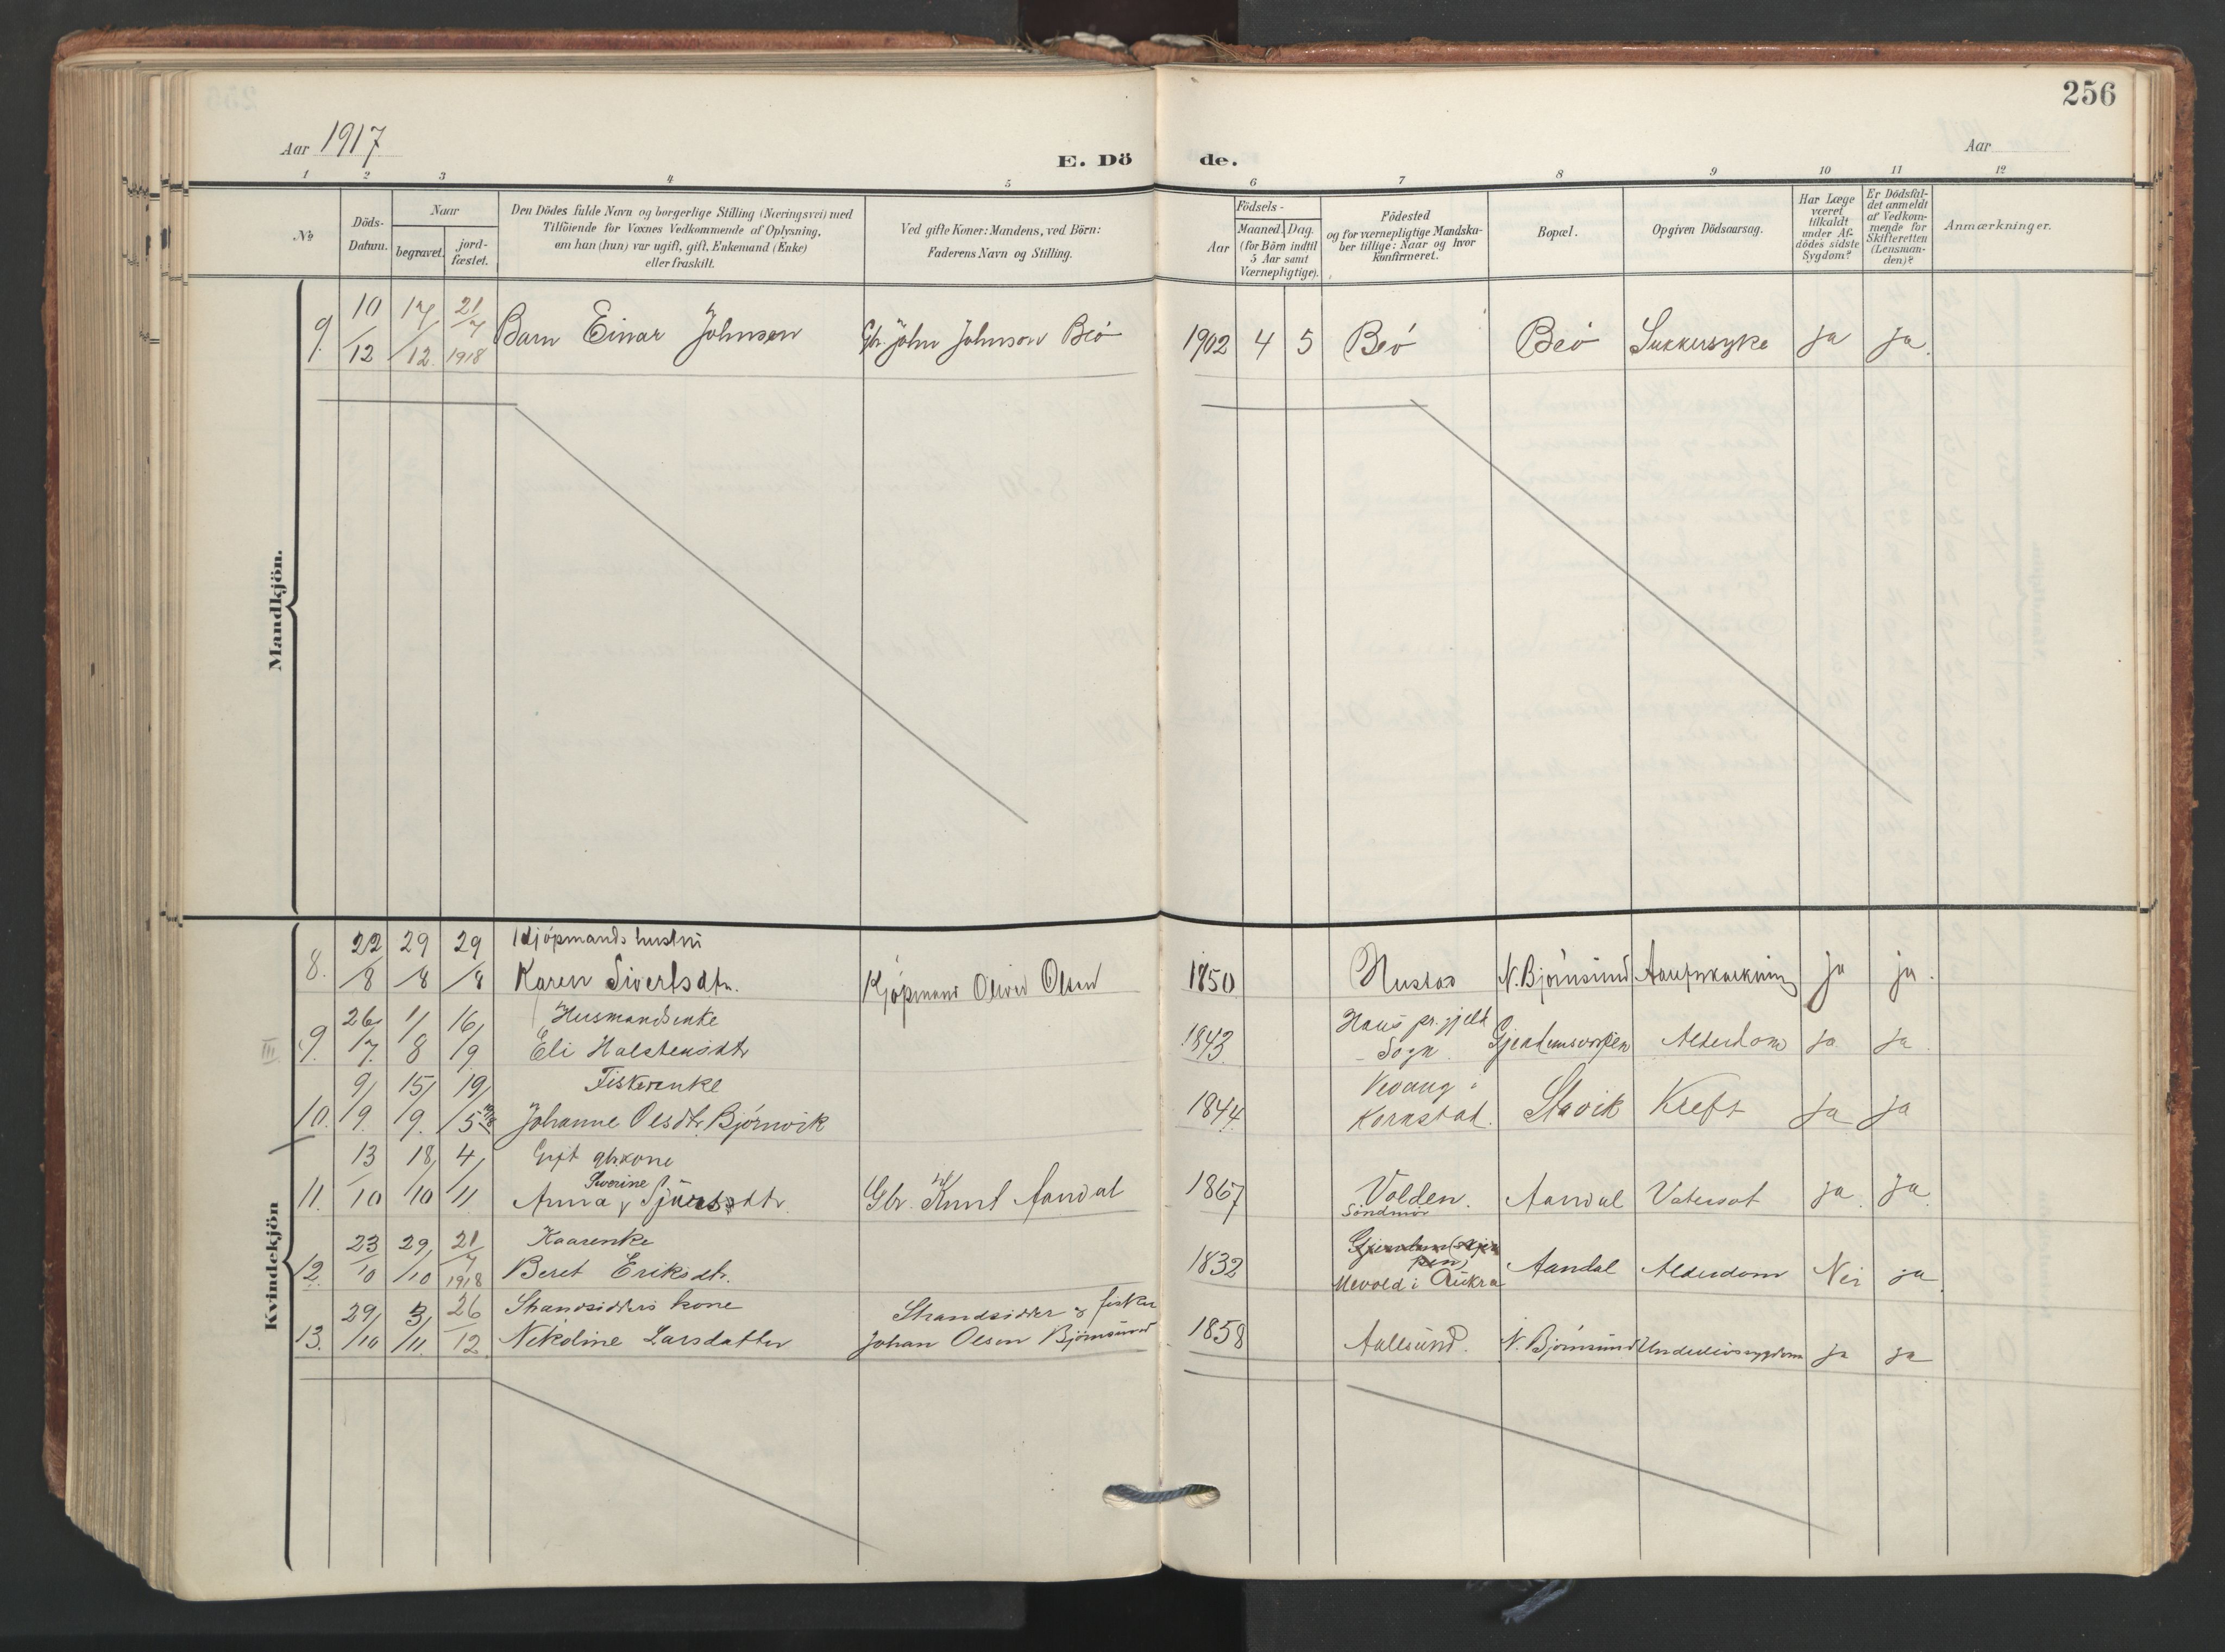 256
Aar 1917
E. Dö de.
Aar
1 2 3 4 5 6 7 8 9 10 11 12
№
Döds-Datum.
Naar
begravet.
jord-fæstet.
Den Dödes fulde Navn og borgerlige Stilling (Næringsvei) med
Tilföiende for Voxnes Vedkommende af Oplysning,
om han (hun) var ugift, gift, Enkemand (Enke)
eller fraskilt.
Ved gifte Koner: Mandens, ved Börn:
Faderens Navn og Stilling.
Födsels-
Aar
Maaned. Dag.
(for Börn indtil
5 Aar samt
Værnepligtige).
Födested
og for værnepligtige Mandska-
ber tillige: Naar og hvor
konfirmeret.
Bopæl.
Opgiven Dödsaarsag.
Har Læge
været
tilkaldt
under Af-
dödes sidste
Sygdom?
Er Dödsfal-
det anmeldt
af Vedkom-
mende for
Skifteretten
(Lensman-
den)?
Anmærkninger.
Mandkjön.
9. 10/12 17/12 21/7 1918 Barn Einar Johnsen Gbr. John Johnson Beó 1902 4 5 Beó Beó Sukkersyke ja ja.
Kvindekjön
8. 22/8 29/8 29/8 Kjópmands hustru
Karen Sivertsdtr. Kjópmand Oliver Olsen 1850 Hustad N. Bjórnsund ja ja.
III
9. 26/7. 1/8 16/9 Husmandsenke
Eli Halstensdtr 1843 Haus pr.gjeld
Sogn. Alderdom ja ja
10. 9/9. 15/9. 19/5 1918 Fiskerenke
Johanne Olsdtr. Bjórnvik 1844 Kvang i
Kornstad. Stavik Kreft ja ja
11. 13/10 18/10 4/11 Gift gbrkone
Severine
Anna Sjúrsdtr. Gbr. Knut Aandal 1867 Volden.
Sóndmór Aandal Vatersot ja ja
12. 23/10 29/10 21/7 1918 Kaarenke
Beret Eriksdtr. 1832
Mevold i Aukra Aandal Alderdom Nei ja
13. 29/10 3/11. 26/12 Strandsidders kone
Nekoline Larsdatter Strandsidder & fisker
Johan Olsen Bjórnsund 1858 Aallesund. N. Bjórnsund Underlivssygdom ja ja